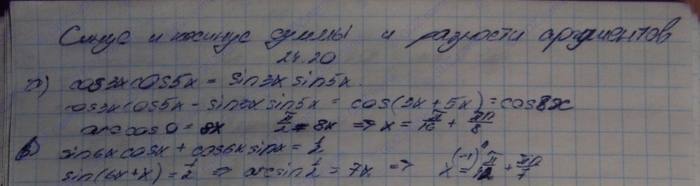 Синус и косинус суммы и разности аргументов
24.20
а) cos3x cos5x = sin3x sin5x
cos3x cos5x - sin3x sin5x = cos(3x+5x) = cos8x
arccos0 = 8x π/2 = 8x => x = π/16 + πn/8
б) sin6x cosx + cos6x sinx = 1/2
sin(6x+x) = 1/2 => arcsin 1/2 = 7x => x = (-1)^n π/42 + πn/7